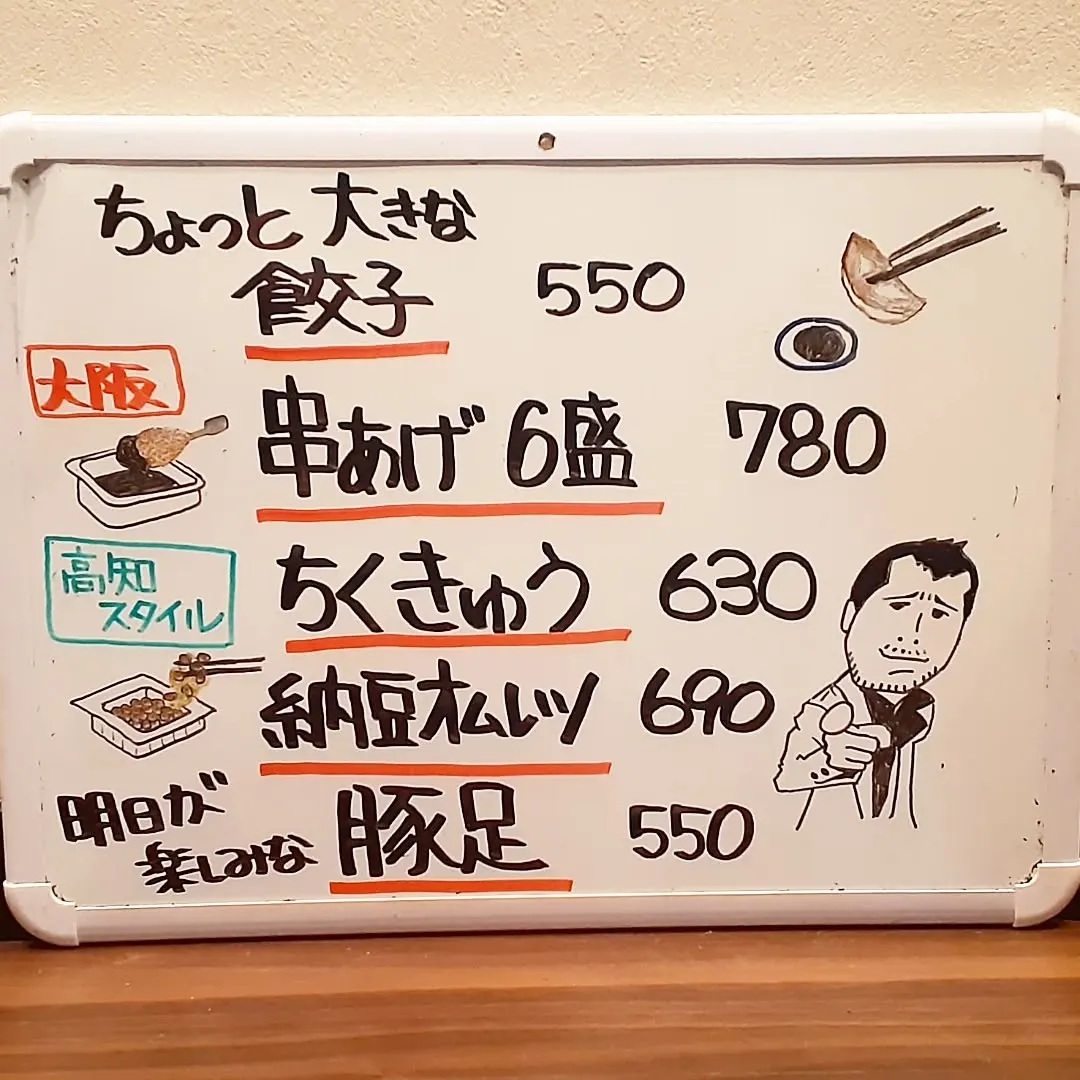 ちょっと大きな
餃子 550
大阪
串あげ 6盛 780
高知
スタイル
ちくきゅう 630
納豆オムレツ 690
明日が
楽しみな 豚足 550